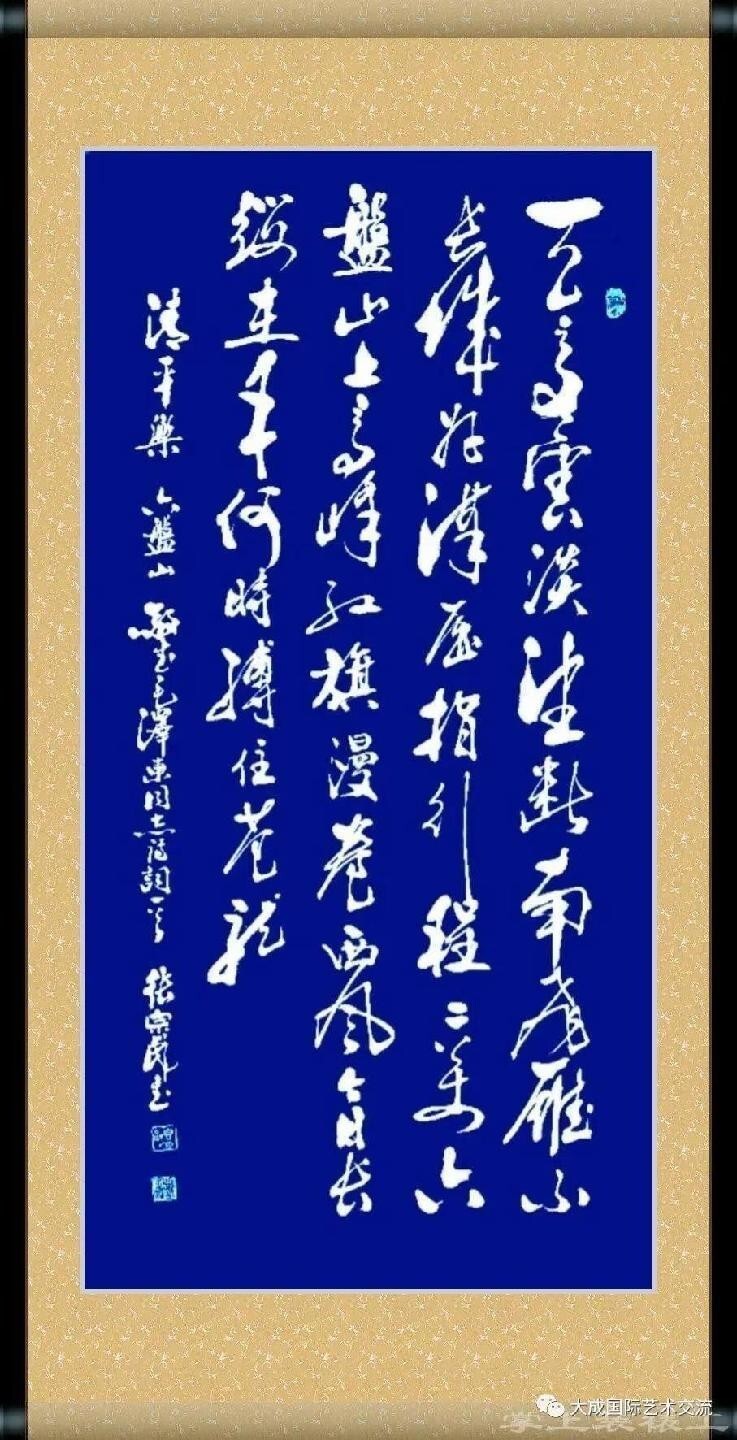 天高雲淡望斷南歸雁不
長城好漢屈指行程二萬六
盤山上高峰紅旗漫卷西風今日長
纓在手何時縛住蒼龍
清平樂 六盤山 敬書毛澤東同志詩詞一首 張宗書
大成国际艺术交流